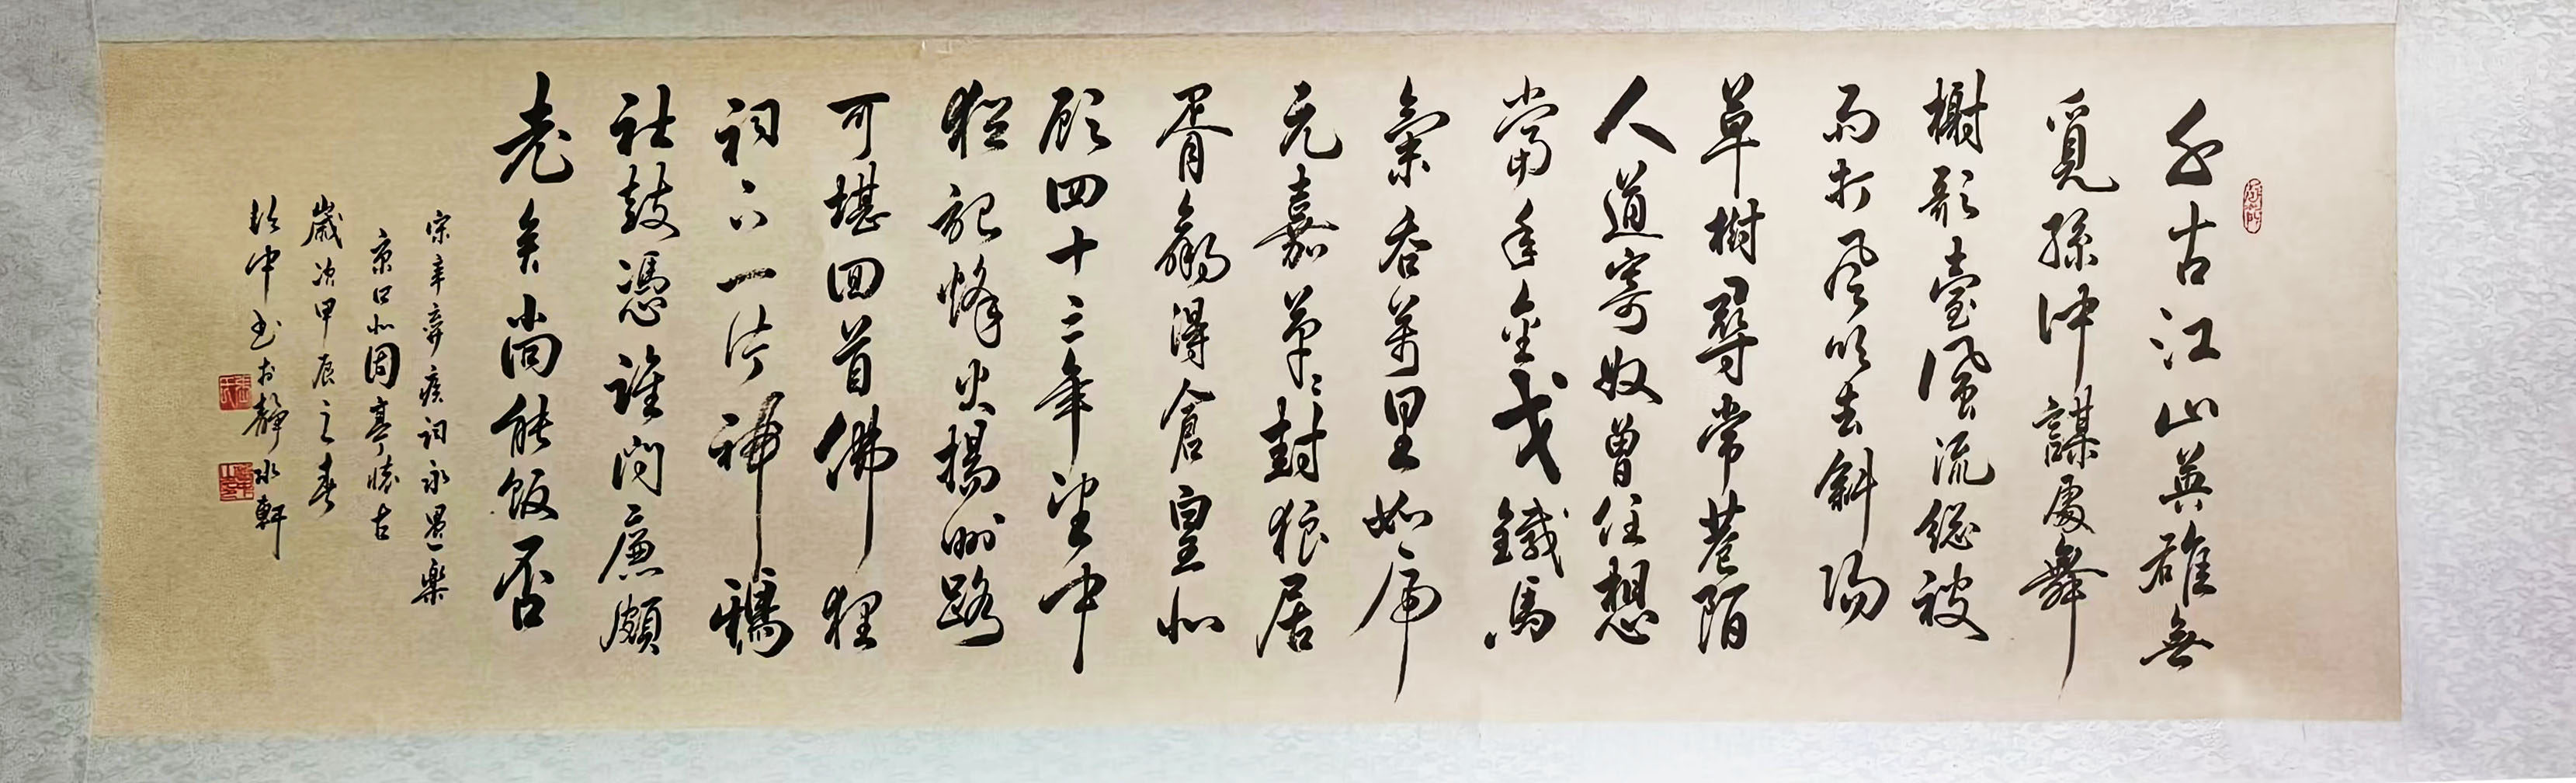 千古江山英雄無
覓孫仲謀處舞
榭歌臺風流總被
雨打風吹去斜陽
草樹尋常巷陌
人道寄奴曾住想
當年金戈鐵馬
氣吞萬里如虎
元嘉草〻封狼居
胥贏得倉皇北
顧四十三年望中
猶記烽火揚州路
可堪回首佛狸
祠下一片神鴉
社鼓憑誰問廉頗
老矣尚能飯否
宋辛棄疾詞永遇樂
京口北固亭懷古
歲次甲辰之春
中书於靜水軒